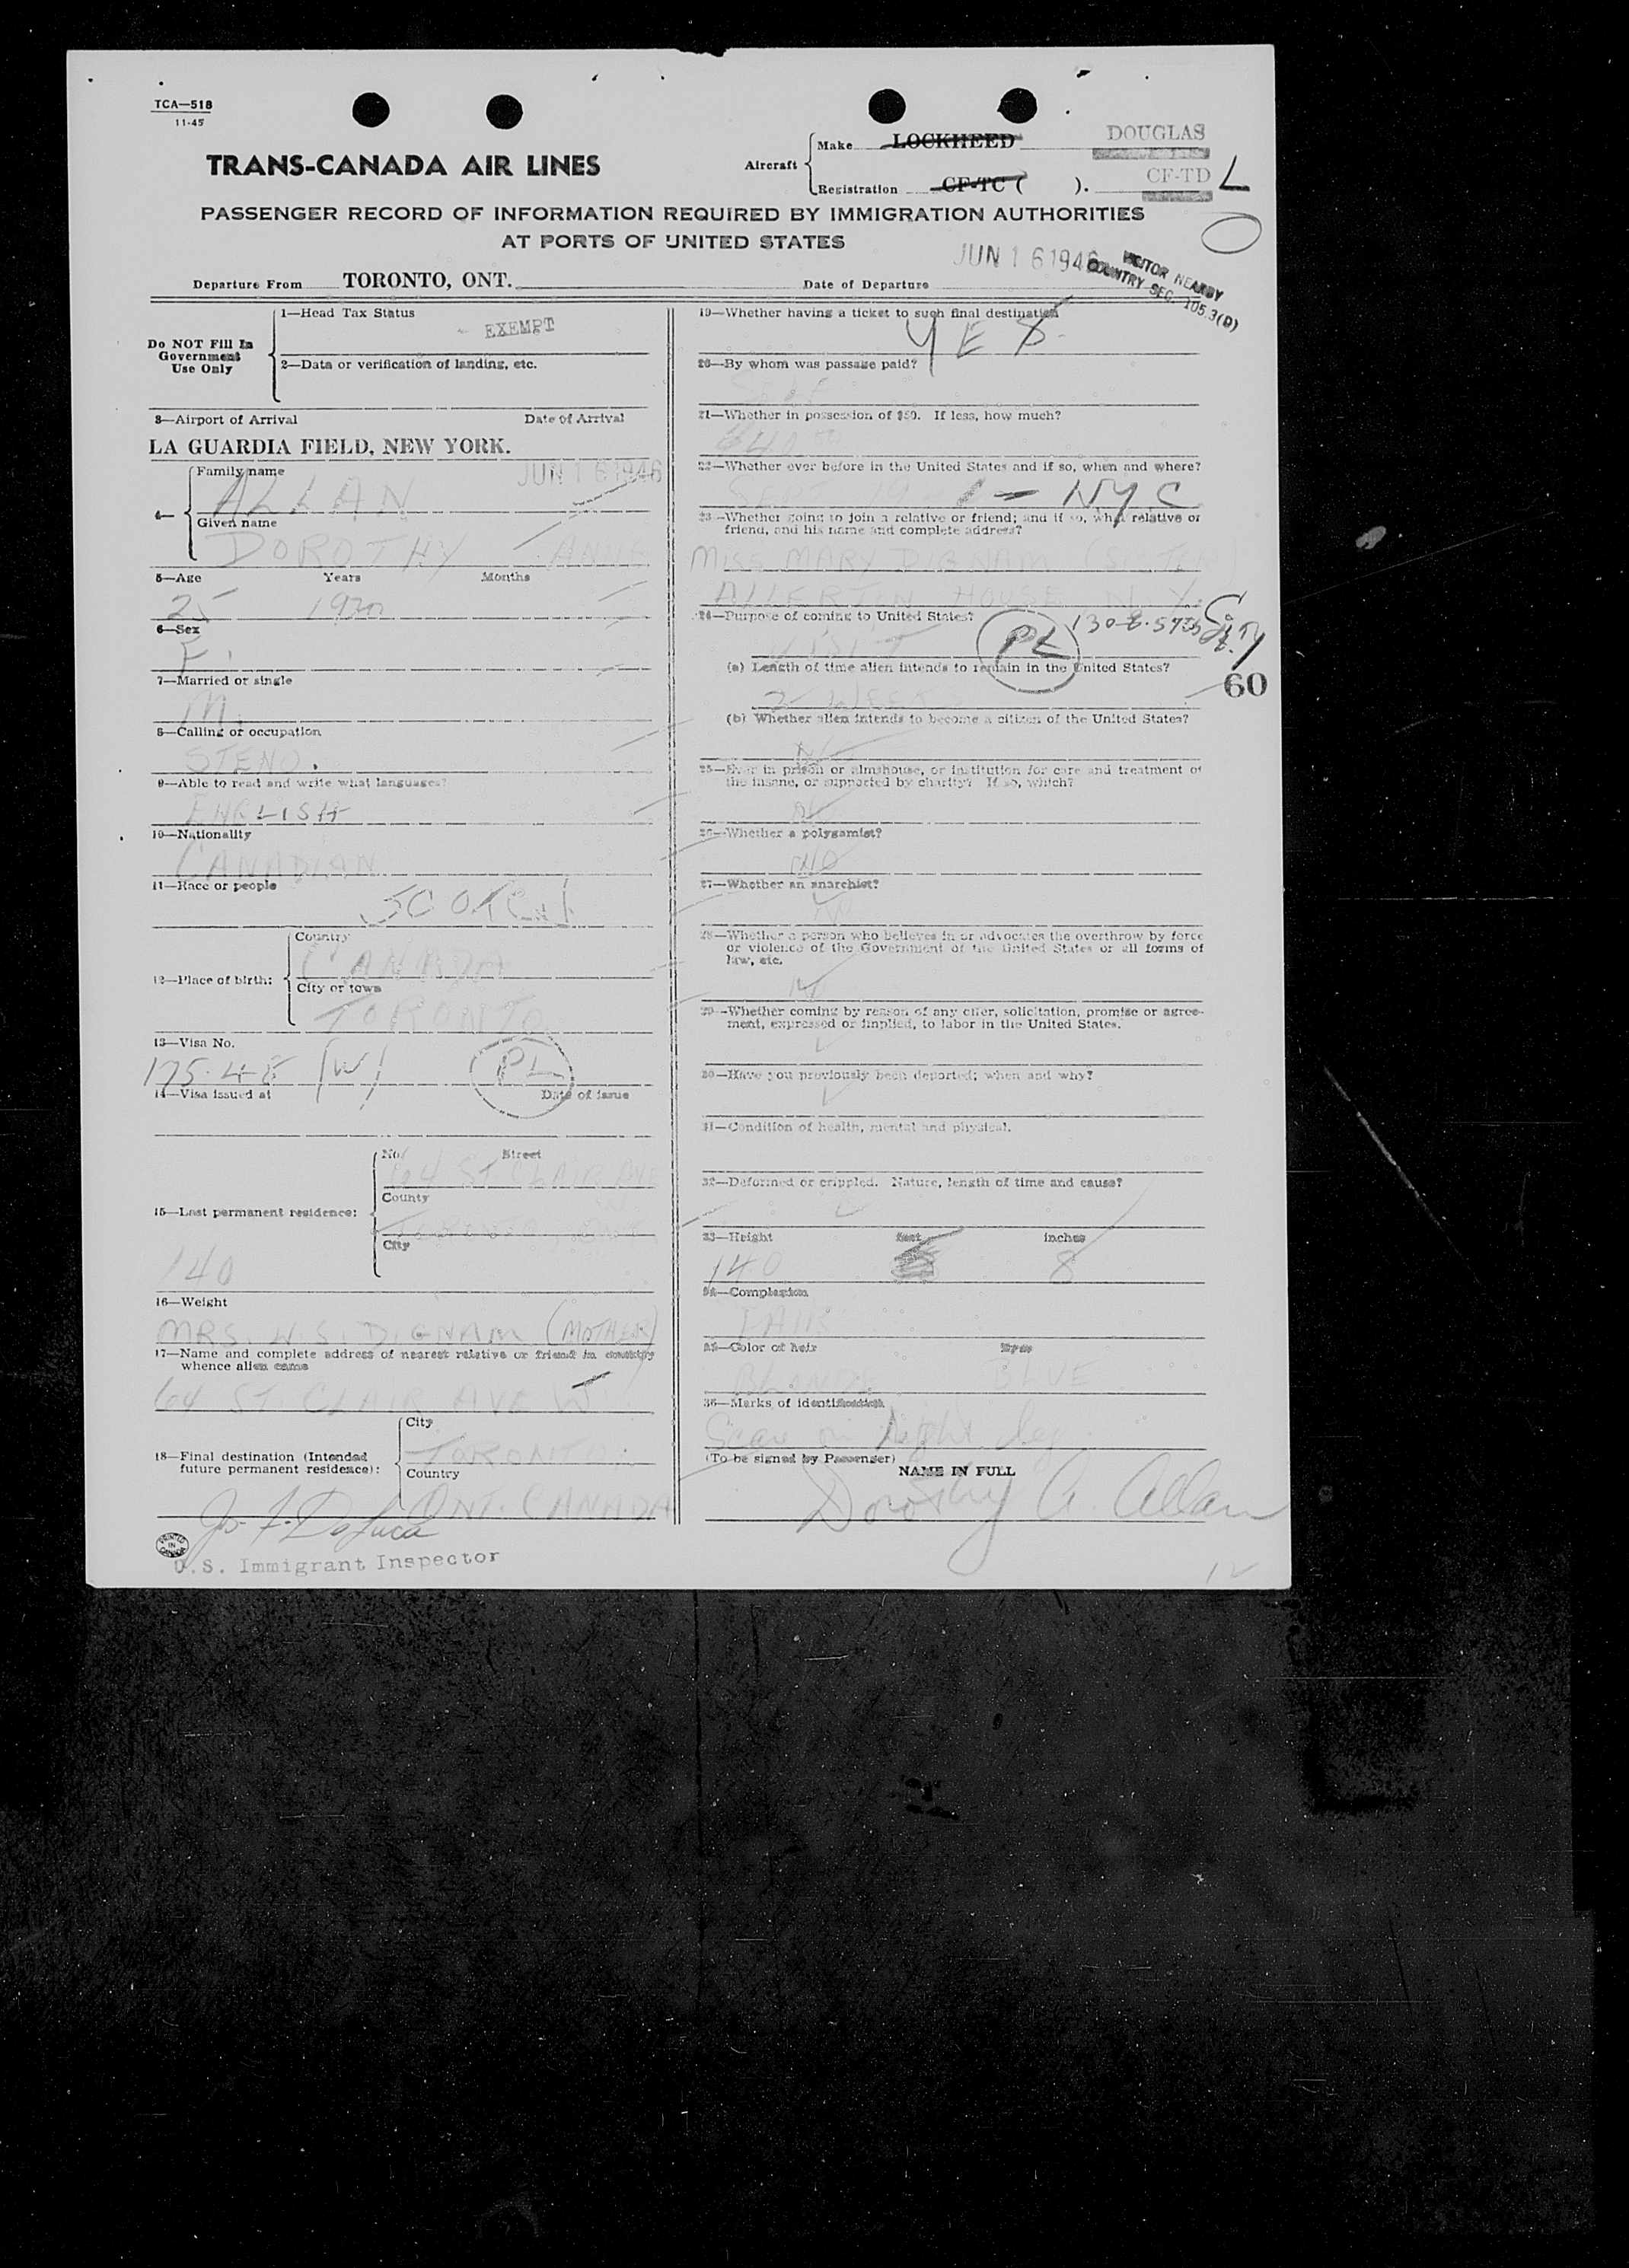 TCA—518
11-45
TRANS-CANADA AIR LINES
Aircraft
Make LOCKHEED DOUGLAS
Registration CF-TC ( ). CF-TD L
PASSENGER RECORD OF INFORMATION REQUIRED BY IMMIGRATION AUTHORITIES
AT PORTS OF UNITED STATES
JUN 16 1946
VISITOR NEARBY
COUNTRY SEC. 105.3(D)
Departure From TORONTO, ONT. Date of Departure
Do NOT Fill In
Government
Use Only
1—Head Tax Status
EXEMPT
2—Data or verification of landing, etc.
3—Airport of Arrival Date of Arrival
LA GUARDIA FIELD, NEW YORK.
JUN 16 1946
4—
Family name
ALLAN
Given name
DOROTHY ANNE
5—Age Years Months
25 1920
6—Sex
F.
7—Married or single
M.
8—Calling or occupation
STENO.
9—Able to read and write what languages?
ENGLISH
10—Nationality
CANADIAN
11—Race or people
SCOTCH
12—Place of birth:
Country
CANADA
City or town
TORONTO
13—Visa No.
175.45 (W) PL
14—Visa issued at Date of issue
15—Last permanent residence:
No. Street
64 ST CLAIR AVE
County
TORONTO ONT
City
140
16—Weight
MRS. W. S. DIGNAM (MOTHER)
17—Name and complete address of nearest relative or friend in country
whence alien came
64 ST. CLAIR AVE W
18—Final destination (Intended
future permanent residence):
City
TORONTO
Country
ONT. CANADA
U.S. Immigrant Inspector
PRINTED
IN
CANADA
19—Whether having a ticket to such final destination
YES
20—By whom was passage paid?
SELF
21—Whether in possession of $50. If less, how much?
22—Whether ever before in the United States and if so, when and where?
NYC
23—Whether going to join a relative or friend; and if so, what relative or
friend, and his name and complete address?
MISS MARY DIGNAM (SISTER)
ALLERTON HOUSE N.Y.
130 E. 57th St. City
24—Purpose of coming to United States?
VISIT PL
(a) Length of time alien intends to remain in the United States?
60
2 WEEKS
(b) Whether alien intends to become a citizen of the United States?
No
25—Ever in prison or almshouse, or institution for care and treatment of
the insane, or supported by charity? If so, which?
No
26—Whether a polygamist?
NO
27—Whether an anarchist?
No
28—Whether a person who believes in or advocates the overthrow by force
or violence of the Government of the United States or all forms of
law, etc.
29—Whether coming by reason of any offer, solicitation, promise or agree-
ment, expressed or implied, to labor in the United States.
30—Have you previously been deported; when and why?
31—Condition of health, mental and physical.
32—Deformed or crippled. Nature, length of time and cause?
33—Height feet inches
140 5 8
34—Complexion
FAIR
35—Color of hair Eyes
BLONDE BLUE
36—Marks of identification
Scar on Right leg
(To be signed by Passenger)
NAME IN FULL
Dorothy A. Allan
12